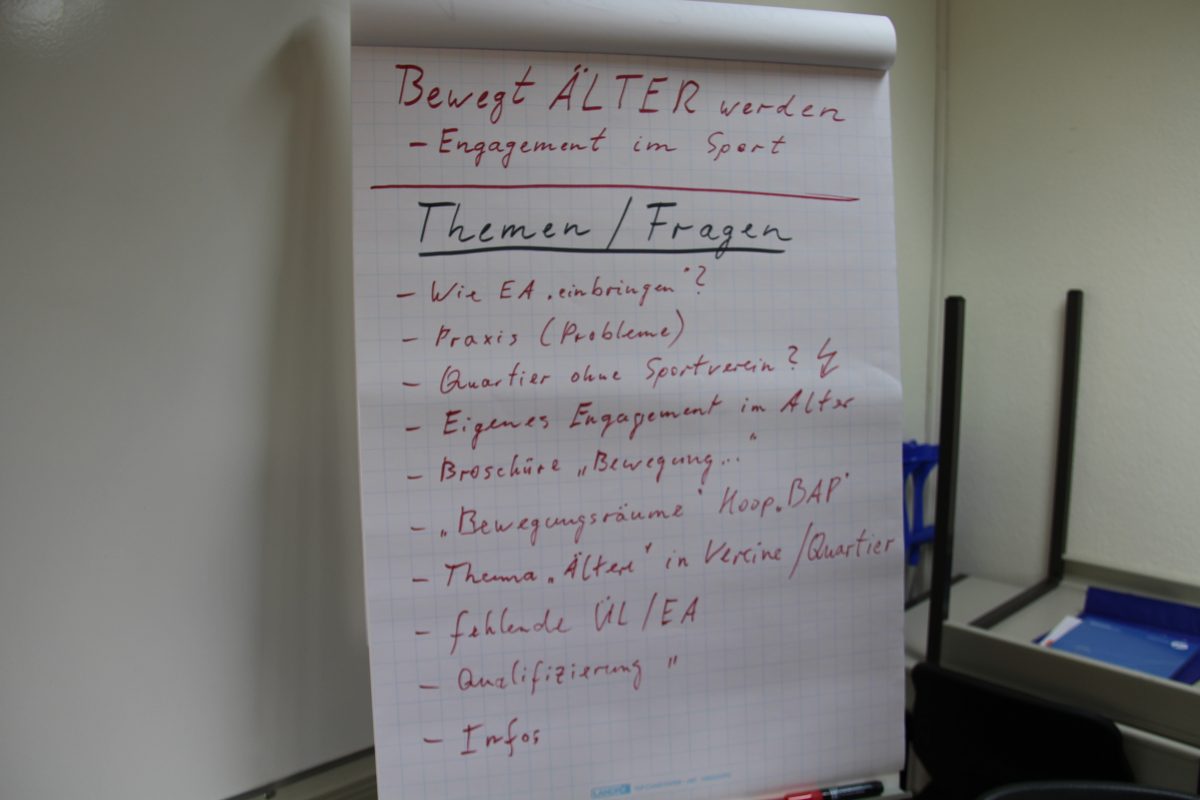 Bewegt ÄLTER werden
- Engagement im Sport
Themen / Fragen
- Wie EA „einbringen"?
- Praxis (Probleme)
- Quartier ohne Sportverein?
- Eigenes Engagement im Alter
- Broschüre „Bewegung..."
- „Bewegungsräume" Koop „BAP"
- Thema „Ältere" in Vereine / Quartier
- fehlende ÜL / EA
- Qualifizierung "
- Infos